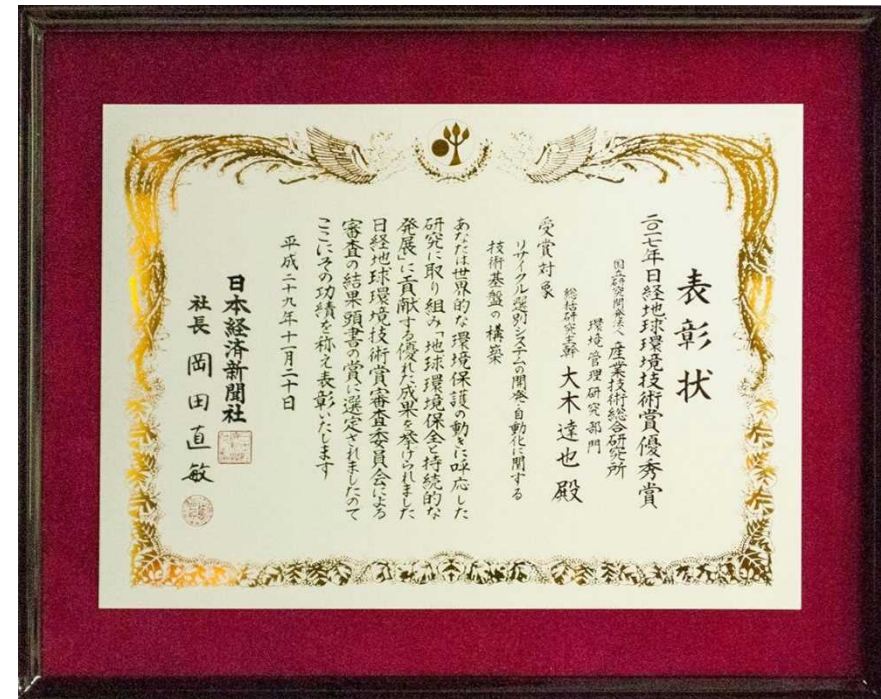 表彰状
二〇一七年日経地球環境技術賞優秀賞
国立研究開発法人 産業技術総合研究所
環境管理研究部門
総括研究主幹 大木達也殿
受賞対象
リサイクル選別システムの開発・自動化に関する
技術基盤の構築
あなたは世界的な環境保護の動きに呼応した
研究に取り組み「地球環境保全と持続的な
発展」に貢献する優れた成果を挙げられました
日経地球環境技術賞審査委員会による
審査の結果頭書の賞に選定されましたので
ここにその功績を称え表彰いたします
平成二十九年十一月二十日
日本経済新聞社
社長 岡田直敏